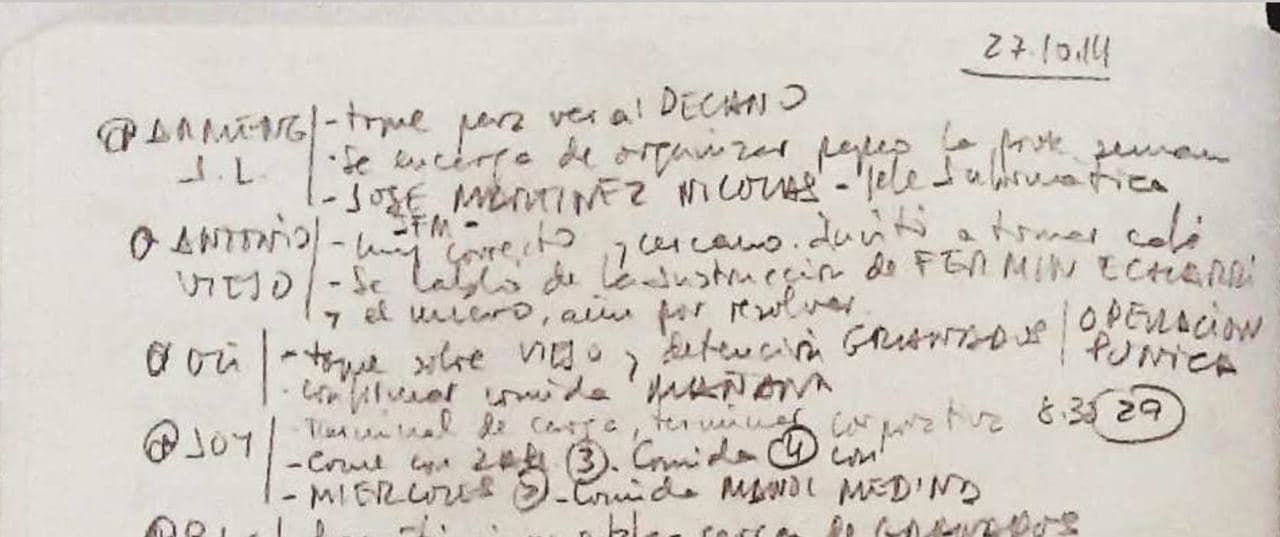 27.10.14
- toque para ver al DECANO
J.L. · Se encarga de organizar papeo la prox semana
- JOSE MARTINEZ NICOLAS - Jefe Informatica
- FM -
ANTONIO - Muy correcto y cercano. Invitó a tomar café
VIEJO - Se habló de la instrucción de FERMIN ECHARRI
y el nuevo, aún por resolver
- toque sobre VIEJO y detención GRANADOS | OPERACION PUNICA
· confirmar comida MAÑANA
JOY · Terminal de carga, terminal corporativa 8.35 29
- Come con 3. Comida 4 con
- MIERCOLES - Comida MEDINA
de GRANADOS